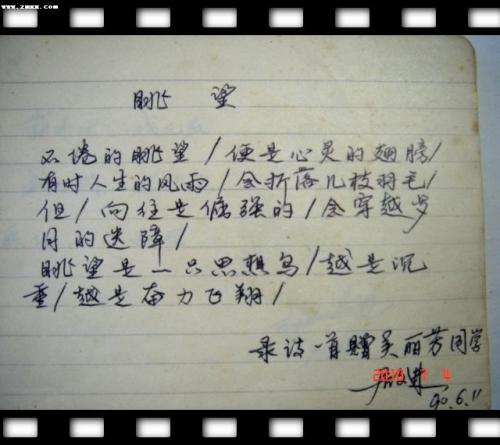 www.zmxx.com
眺 望
不倦的眺望/便是心灵的翅膀/
有时人生的风雨/会折落几枝羽毛/
但/向往是倔强的/会穿越岁
月的迷障/
眺望是一只思想鸟/越是沉
重/越是奋力飞翔/
录诗一首赠吴丽芳同学
90.6.11